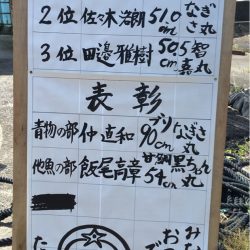 2位 佐々木浩朗 51.0cm なぎさ丸
3位 田邉雅樹 50.5cm 智嘉丸
表彰
青物の部 仲直和 ブリ90cm なぎさ丸
他魚の部 飯尾高章 甘鯛54cm 黒ちゃん丸